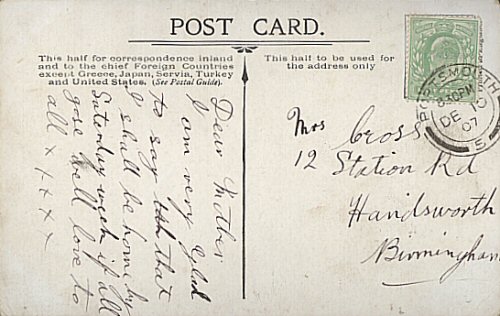 POST CARD.
This half for correspondence inland
and to the chief Foreign Countries
except Greece, Japan, Servia, Turkey
and United States. (See Postal Guide).
This half to be used for
the address only
Dear Mother
I am very glad
to say that
I shall be home by
Saturday week if all
goes well love to
all x x x x
PORTSMOUTH
DE
07
5
Mrs Cross
12 Station Rd
Handsworth
Birmingham